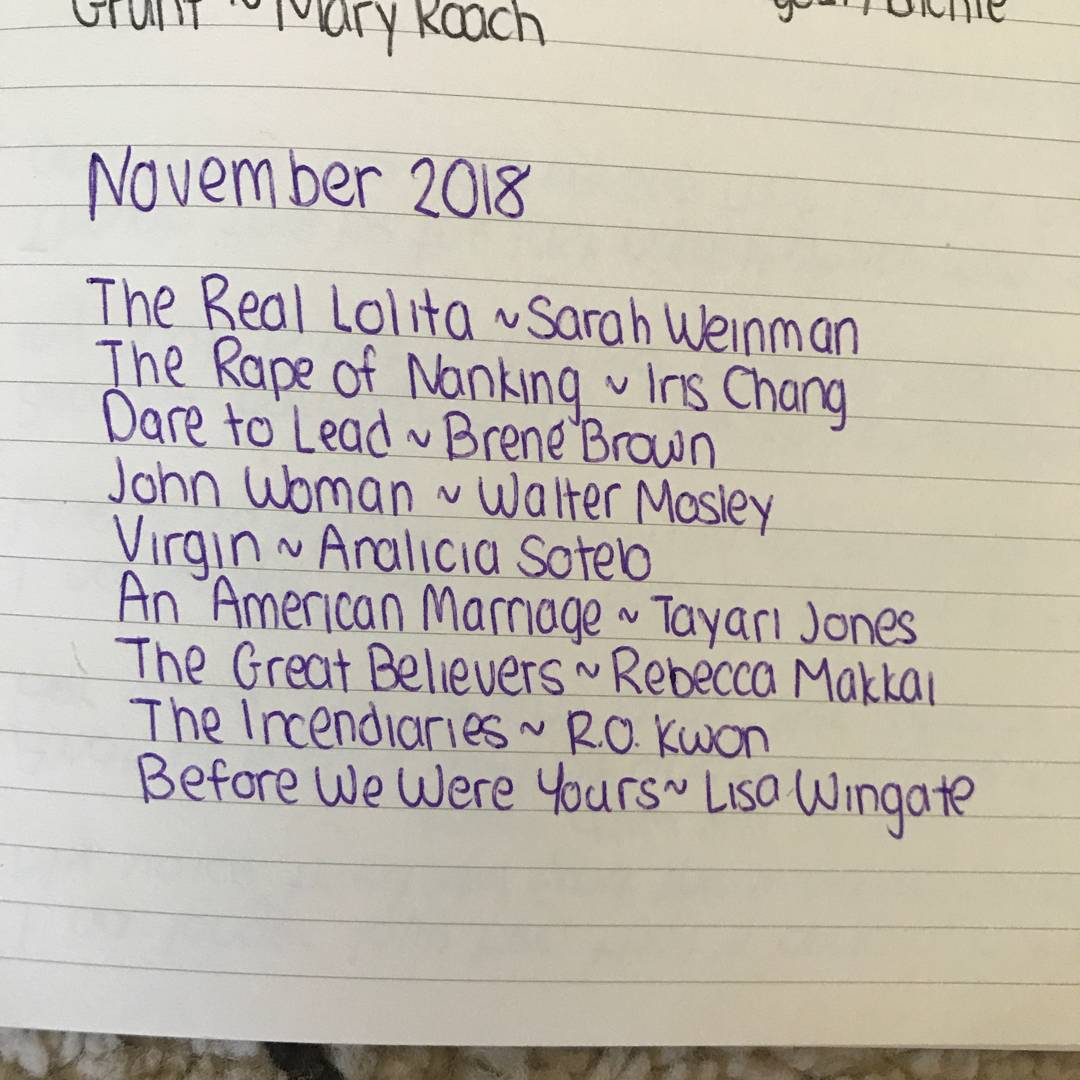 Grunt ~ Mary Roach
November 2018
The Real Lolita ~ Sarah Weinman
The Rape of Nanking ~ Iris Chang
Dare to Lead ~ Brené Brown
John Woman ~ Walter Mosley
Virgin ~ Analicia Sotelo
An American Marriage ~ Tayari Jones
The Great Believers ~ Rebecca Makkai
The Incendiaries ~ R.O. Kwon
Before We Were Yours ~ Lisa Wingate